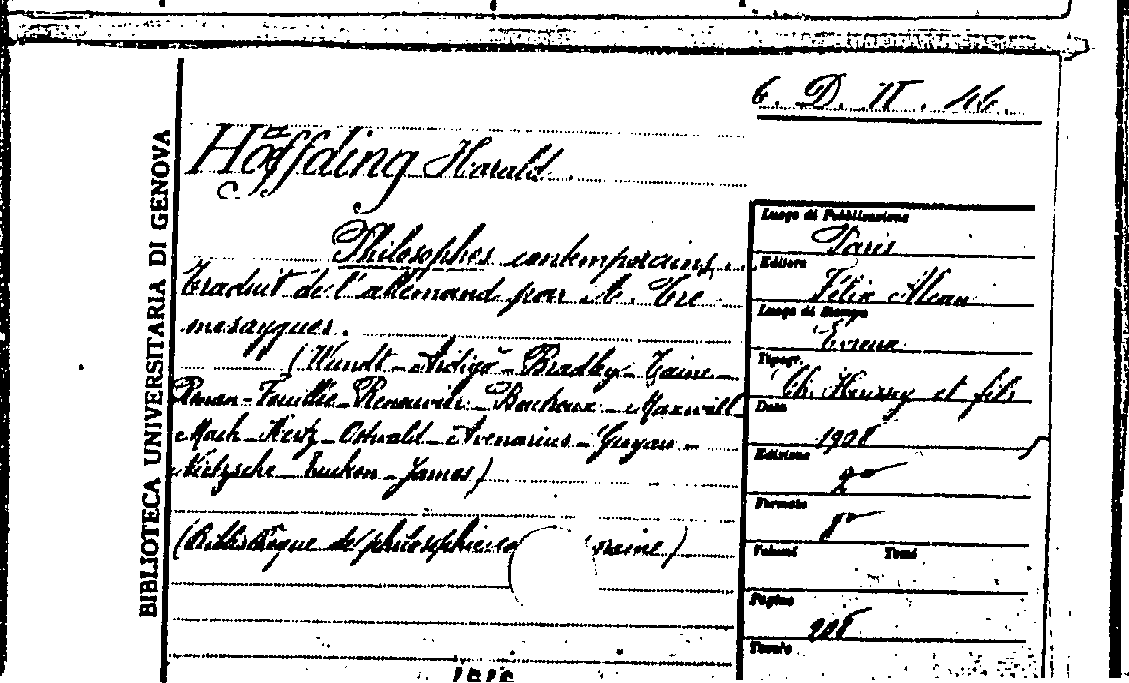 6. D. II. 46.
BIBLIOTECA UNIVERSITARIA DI GENOVA
Höffding Harald.
Philosophes contemporains.
Traduit de l'allemand par A. Tre
mesaygues.
(Wundt - Ardigò - Bradley - Taine -
Renan - Fouillée - Renouvier - Boutroux - Maxwell
Mach - Hertz - Ostwald - Avenarius - Guyau -
Nietzsche - Eucken - James)
(Bibliothèque de philosophie co raine)
Luogo di Pubblicazione
Paris
Editore
Félix Alcan
Luogo di Stampa
Evreux
Tipogr.
Ch. Hérissey et fils
Data
1908
Edizione
2ª
Formato
8°
Volumi Tomi
Pagine
208
Tavole